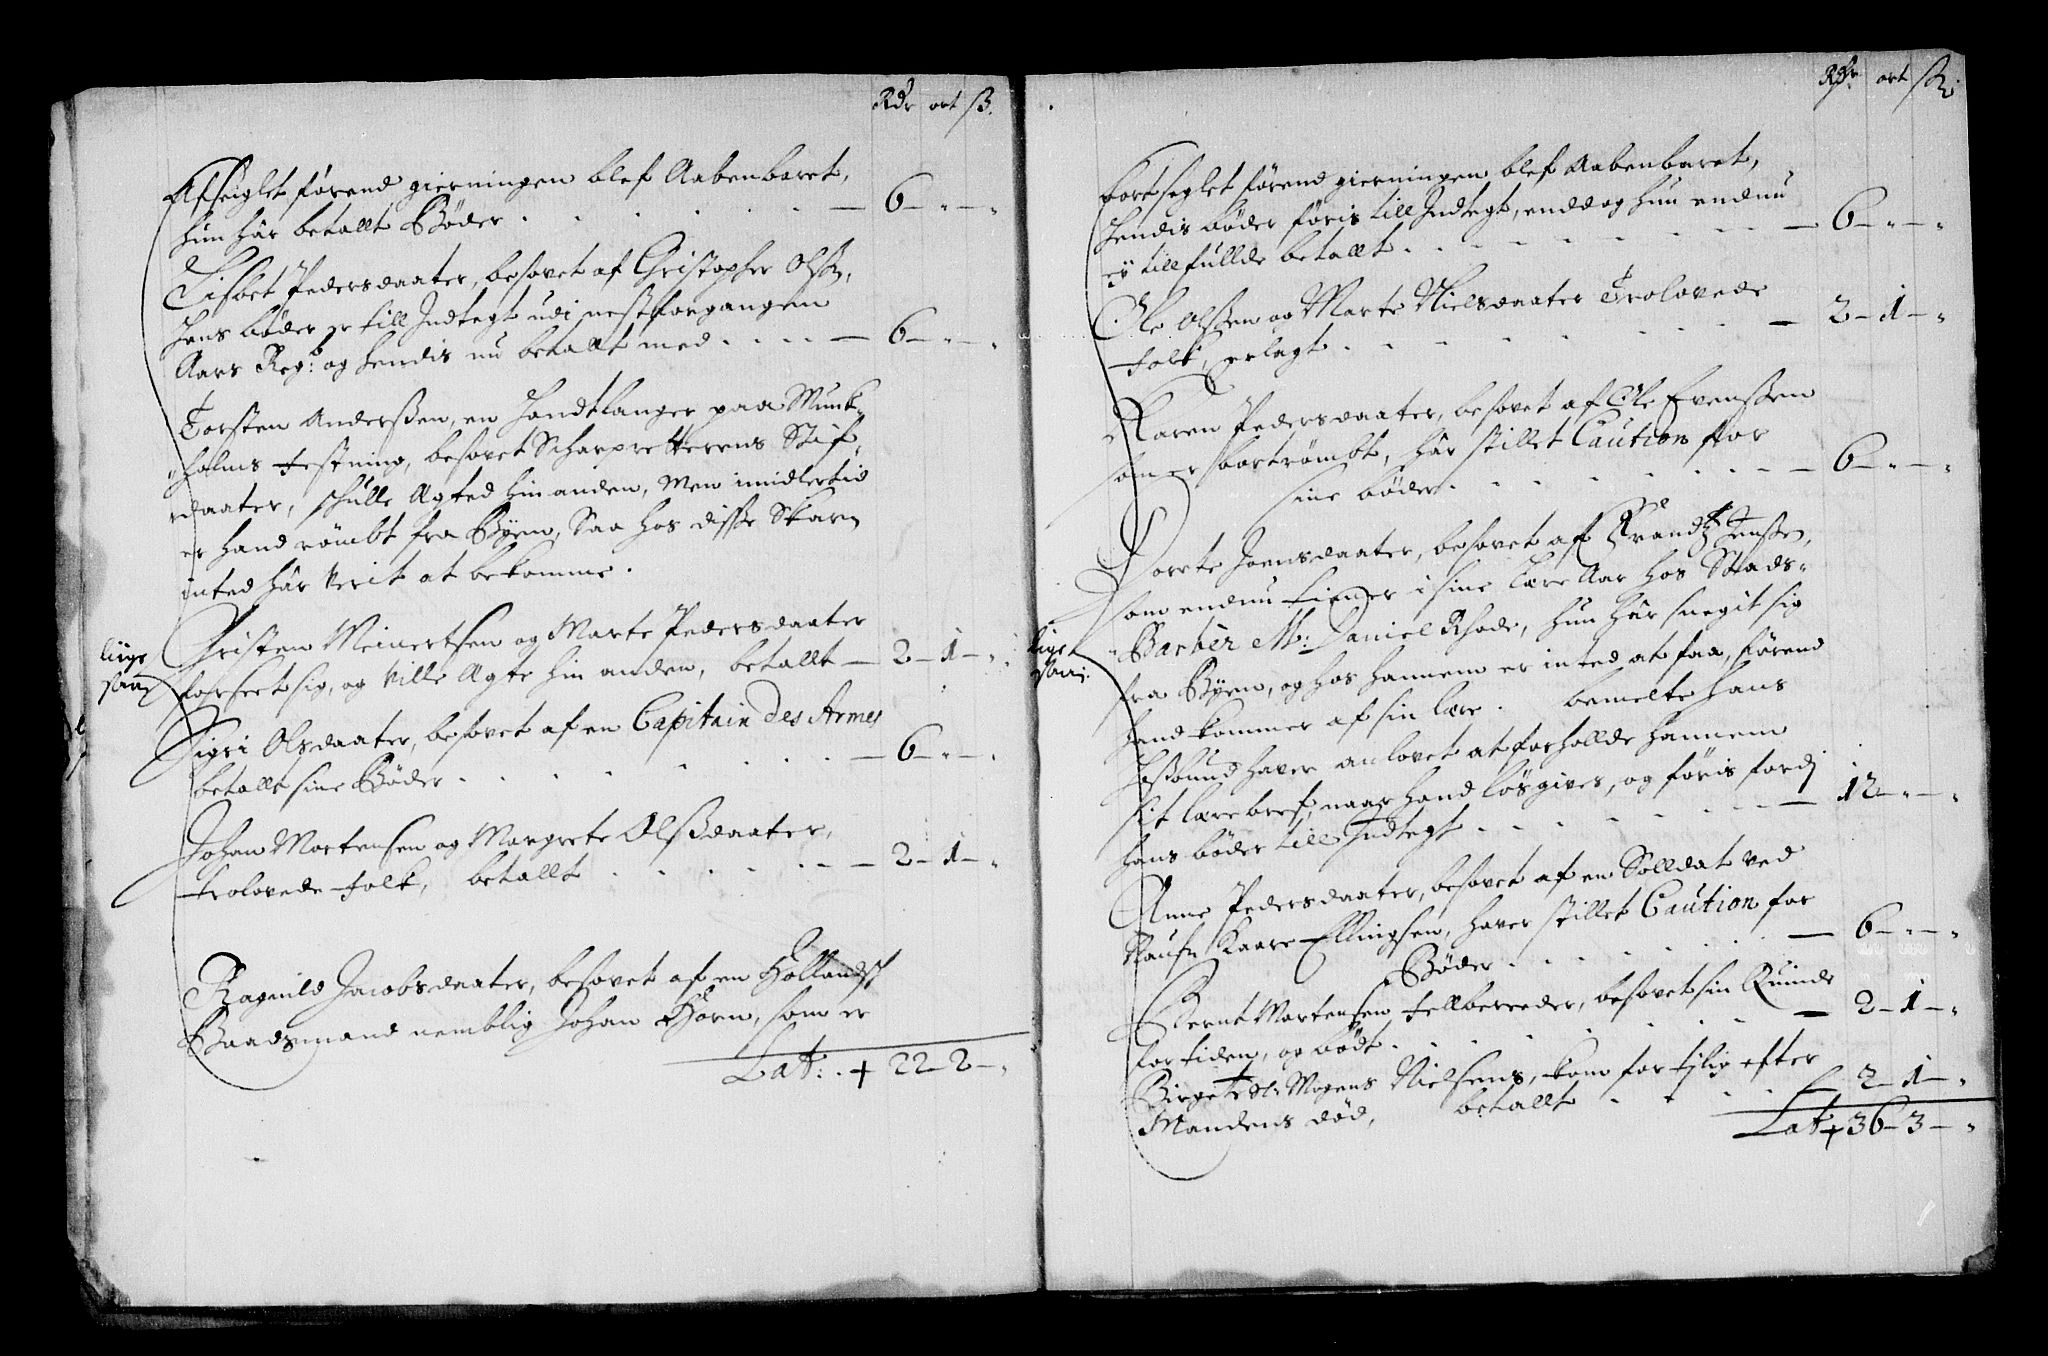 Rdr ort ß.
Afseiglet førend gierningen blef Aabenbaret,
hun hâr betallt Bøder . . . . . . — 6 — „ — „
Lisbet Pedersdaater, besovet af Christopher Olsß:,
hans bøder er till Indtegt udi nestforgangem
Aars Reg: og hendis nu betallt med . . . . — 6 — „ — „
Torsten Anderßen, en Handtlanger paa Munk-
holms Festning, besovet Scharpretterens Stif-
daater, schulle Agted hin anden, Men imidlertid
er hand römbt fra Byen, Saa hos diße Skarn
inted hâr Verit at bekomme.
liige
saa
Christen Meinertsen og Marte Pedersdaater
forseet sig, og Ville Agte hin anden, betallt — 2 — 1 — „
Sigri Olsdaater, besovet af en Capitain des Armes
betallt sine Bøder . . . . . . . — 6 — „ — „
Johan Mortensen og Margrete Olßdaater,
trolovede folk, betallt . . . . . . — 2 — 1 — „
Ragnild Jacobsdaater, besovet af en Hollandsch
Baadsmand nemblig Johan Horn, som er
Lat: . + 22 — 2 — „
Rdr ort ß
bortseglet förend gierningen blef Aabenbaret,
hendis bøder føris till Indtegt, enddog hun endnu
ey till fullde betallt . . . . . . . . — 6 — „ — „
Ole Olßen og Marte Nielsdaater Trolovede
folk, erlagt . . . . . . . — 2 — 1 — „
Karen Pedersdaater, besovet af Ole Evenßen
som er bortrömbt, hâr stillet Caution for
sine bøder . . . . . . . — 6 — „ — „
liige
saa:
Dorte Joensdaater, besovet af Frandtz Jenße,
som endnu tiener i sine Lære Aar hos Stads-
Barber Mr: Daniel Rhode, hun hâr sneget sig
fra Byen, og hos hannem er inted at faa, förend
hand kommer af sin lære. bemelte hans
Hosbund haver anlovet at forhollde hannem
sit lærebref, naar hand lösgives, og föris fordj
hans bøder till Indtegt . . . . . . — 12 — „ — „
Anne Pedersdaater, besovet af en Solldat ved
Nafn Kaare Ellingsen, haver stillet Caution for
Bøder . . . . . . — 6 — „ — „
Bernt Mortensen fellbereeder, besovet sin Quinde
for tiden, og bödt . . . . . . — 2 — 1 — „
Birgete Sl: Mogens Nielsens, kom for tjlig efter
Mandens död, betallt . . . . — 2 — 1 — „
Lat + 36 — 3 — „